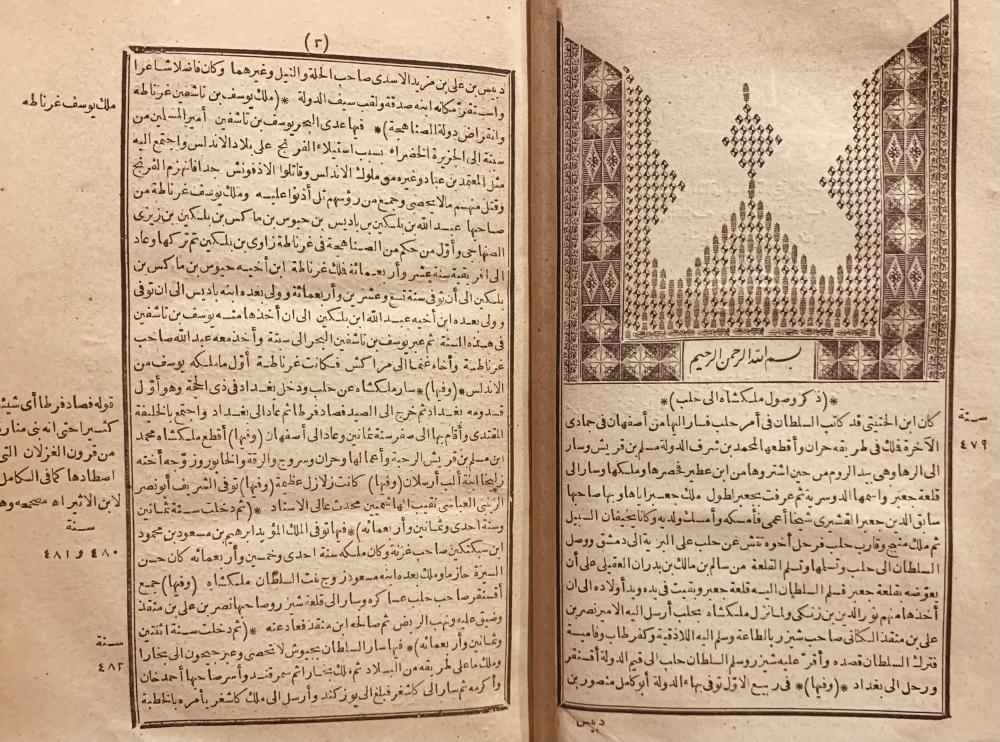 بسم الله الرحمن الرحيم
*(ذكر وصول ملكشاه الى حلب)*
سنة
٤٧٩
كان ابن الحتيتي قد كاتب السلطان في أمر حلب فسار اليها من أصفهان في جمادى
الآخرة فملك في طريقه حران وأقطعها لمحمد بن شرف الدولة مسلم بن قريش وسار
الى الرها وهى بيد الروم من حين اشتروها من ابن عطير فحصرها وملكها وسار الى
قلعة جعبر واسمها الدوسرية ثم عرفت بجعبر لطول ملك جعبر اياها وبها صاحبها
سابق الدين جعبر القشيرى شيخا أعمى فأمسكه وأمسك ولديه وكانا يخيفان السبيل
ثم ملك منبج وقارب حلب فرحل أخوه تتش عن حلب على البرية الى دمشق ووصل
السلطان الى حلب وتسلمها وتسلم القلعة من سالم بن مالك بن بدران العقيلى على أن
يعوضه بقلعة جعبر فسلم السلطان اليه قلعة جعبر وبقيت فى يده ويد أولاده الى ان
أخذها منهم نور الدين بن زنكى ولما نزل ملكشاه بحلب أرسل اليه الامير نصر بن
على بن منقذ الكنانى صاحب شيزر بالطاعة وسلم اليه اللاذقية وكفرطاب وفامية
فترك السلطان قصده وأقر عليه شيزر وسلم السلطان حلب الى قيم الدولة أقسنقر
ورحل الى بغداد *(وفيها)* فى ربيع الاول توفى بهاء الدولة أبو كامل منصور بن
دبيس
(٣)
دبيس بن على بن مزيد الاسدى صاحب الحلة والنيل وغيرهما وكان فاضلا شاعرا
واستقر مكانه ابنه صدقة ولقب سيف الدولة *(ملك يوسف بن تاشفين غرناطه
وانقراض دولة الصناهجة)* فيها عدى البحر يوسف بن تاشفين أمير المسلمين من
سبتة الى الجزيرة الخضراء بسبب استيلاء الفرنج على بلاد الاندلس واجتمع اليه
مثل المعتمد بن عباد وغيره من ملوك الاندلس وقاتلوا الاذفونش حدا فانهزم الفرنج
وقتل منهم مالا يحصى وجمع من رؤسهم تل أذنوا عليه وملك يوسف غرناطة من
صاحبها عبد الله بن بلكين بن باديس بن حبوس بن ماكس بن بلكين بن زيرى
الصنهاجى وأول من حكم من الصناهجة فى غرناطة زاوى بن بلكين ثم تركها وعاد
الى افريقية سنة عشر وأربعمائة فملك غرناطة ابن أخيه حبوس بن ماكس بن
بلكين الى أن توفى سنة تسع وعشرين وأربعمائة وولى بعده ابنه باديس الى ان توفى
وولى بعده ابن أخيه عبد الله ابن بلكين الى ان أخذها منه يوسف بن تاشفين
فى هذه السنة ثم عبر يوسف بن تاشفين البحر الى سبتة وأخذ معه عبد الله صاحب
غرناطة وأخاه غيما الى مراكش فكانت غرناطة أول ما ملكه يوسف من
الاندلس *(وفيها)* سار ملكشاه عن حلب ودخل بغداد فى ذى الحجة وهو أول
قدومه بغداد ثم خرج الى الصيد فصاد فرطا ثم عاد الى بغداد واجتمع بالخليفة
المقتدى وأقام بها الى صفر سنة ثمانين وعاد الى أصفهان (وفيها) أقطع ملكشاه محمد
ابن مسلم بن قريش الرحبة وأعمالها وحران وسروج والرقة والخابور وزوجه أخته
زليخا ابنة ألب أرسلان (وفيها) كانت زلازل عظيمة (وفيها) توفى الشريف أبو نصر
الزينبى العباسى نقيب الهاشميين محدث عالى الاسناد *(ثم دخلت سنة ثمانين
وسنة احدى وثمانين وأربعمائة)* فيها توفى الملك المؤيد ابرهيم بن مسعود بن محمود
ابن سبكتكين صاحب غزنة وكان ملكه سنة احدى وخمسين وأربعمائة كان حسن
السيرة حازما وملك بعده ابنه مسعود زوج بنت السلطان ملكشاه (وفيها) جمع
أقسنقر صاحب حلب عساكره وسار الى قلعة شيزر وصاحبها نصر بن على بن منقذ
وضيق عليه ونهب الربض ثم صالحه ابن منقذ فعاد عنه *(ثم دخلت سنة اثنتين
وثمانين وأربعمائة)* فيها سار السلطان بجيوش لا تحصى وعبر جيحون الى بخارا
وملك ما على طريقه من البلاد ثم ملك بخارا ثم سمرقند وأسر صاحبها أحمد خان
وأكرمه ثم سار الى كاشغر فبلغ الى يوزكند وأرسل الى ملك كاشغر يأمره بالخطبة
ملك يوسف غرناطه
قوله فصاد فرطا أى شيئا
كثيرا حتى انه بنى منارة
من قرون الغزلان التى
اصطادها كما فى الكامل
لابن الاثير اه مصححه
سنة
٤٨٠ و ٤٨١
سنة
٤٨٢